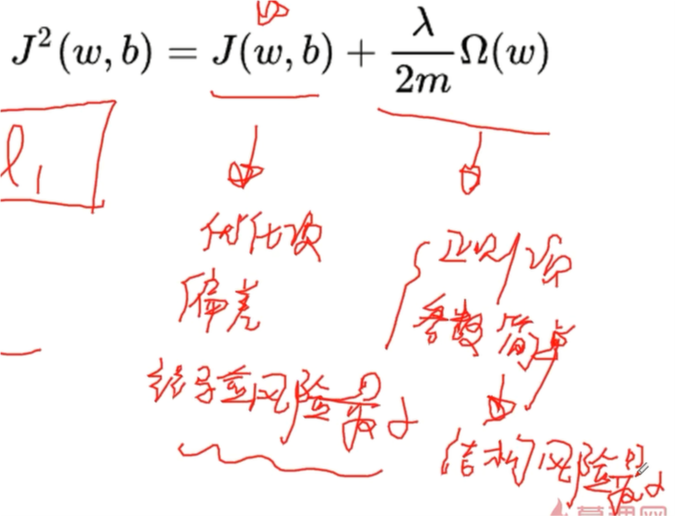 J²(w, b) = J(w, b) + λ/2m Ω(w)
l₁
优化项
偏差
经验风险最小
正则化项
参数简单
结构风险最小
慕课网